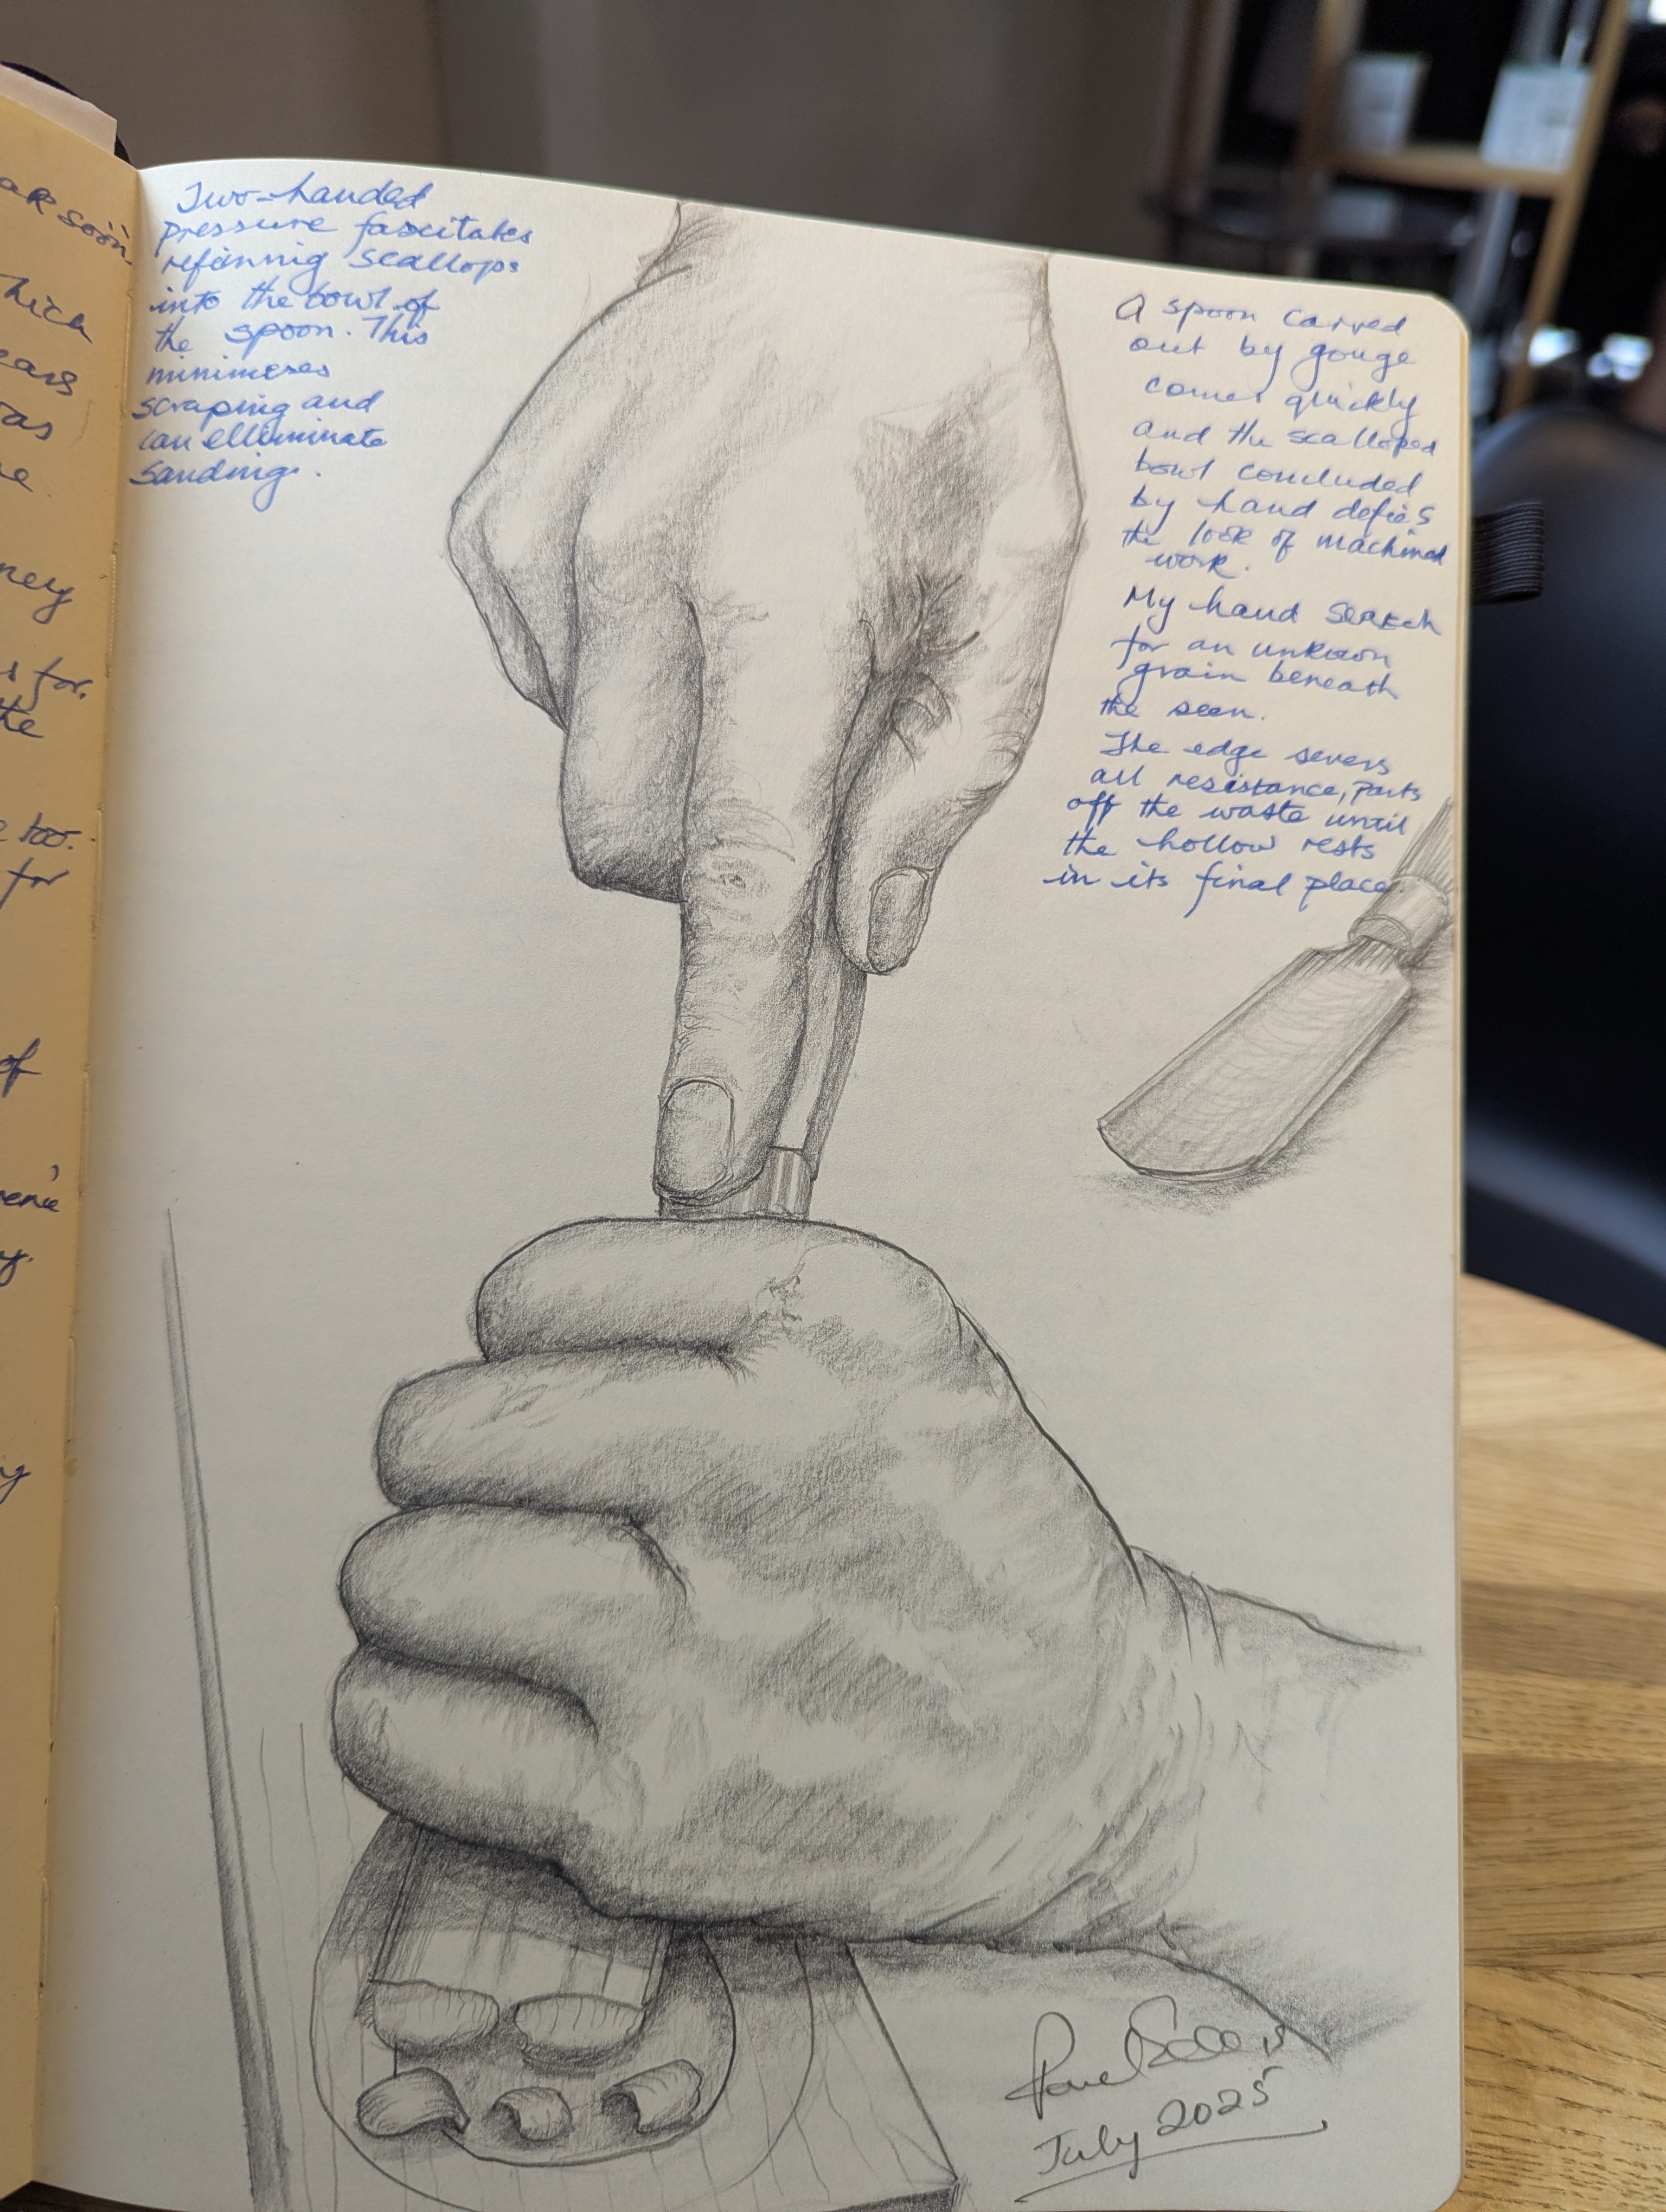 ar soon
hick
ears
as
e.
ney
s for.
the
e too.
for
of
y.
y
Two-handed
pressure fascitates
refinning scallops
into the bowl of
the spoon. This
minimeses
scraping and
can elliminate
sanding.
A spoon carved
out by gouge
comes quickly
and the scalloped
bowl concluded
by hand defies
the look of machined
work.
My hand search
for an unknown
grain beneath
the seen.
The edge severs
all resistance, parts
off the waste until
the hollow rests
in its final place.
Paul Sellers
July 2025